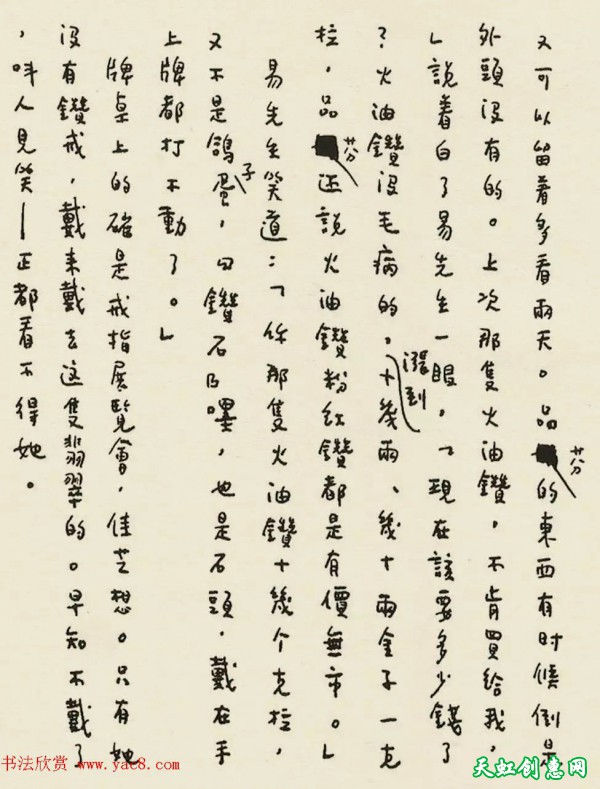 又可以留着多看兩天。品芬的東西有时候倒是
外頭没有的。上次那隻火油鑽，不肯買給我，
」說着白了易先生一眼。「現在該要多少錢了
？火油鑽没毛病的，漲到十幾兩、幾十兩金子一克
拉，品芬还說火油鑽粉紅鑽都是有價無市。」
易先生笑道：「你那隻火油鑽十幾个克拉，
又不是鴿子蛋，『鑽石』嚜，也是石頭，戴在手
上牌都打不動了。」
牌桌上的確是戒指展覽會，佳芝想。只有她
没有鑽戒，戴来戴去这隻翡翠的。早知不戴了
，呌人見笑—正都看不得她。
书法欣赏 www.yac8.com
天虹创意网